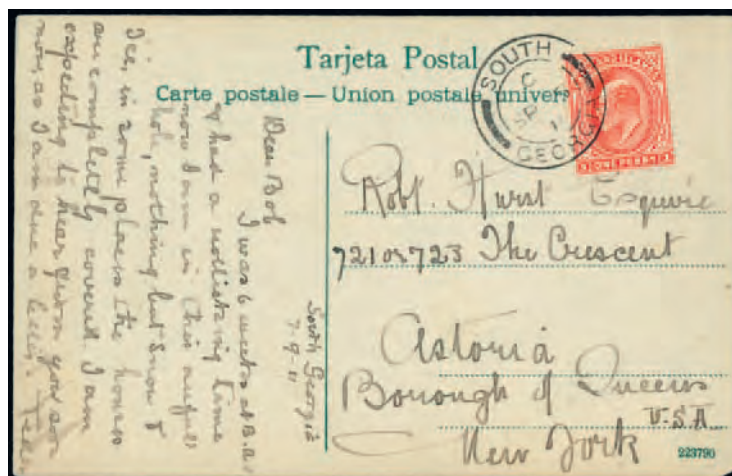 Tarjeta Postal
Carte postale — Union postale univers
SOUTH
C
SP
1
GEORGIA
ONE PENNY
Robt. Hurst Esquire
721 or 723 The Crescent
Astoria
Borough of Queens
New York
U.S.A
223790
South Georgia
7-9-11
Dear Bob
I was 6 weeks at B.A.
& had a time
now I am in this awful
hole, nothing but snow &
Ice, in some places the houses
are completely covered. I am
expecting to hear from you soon
now, as I am due a letter.